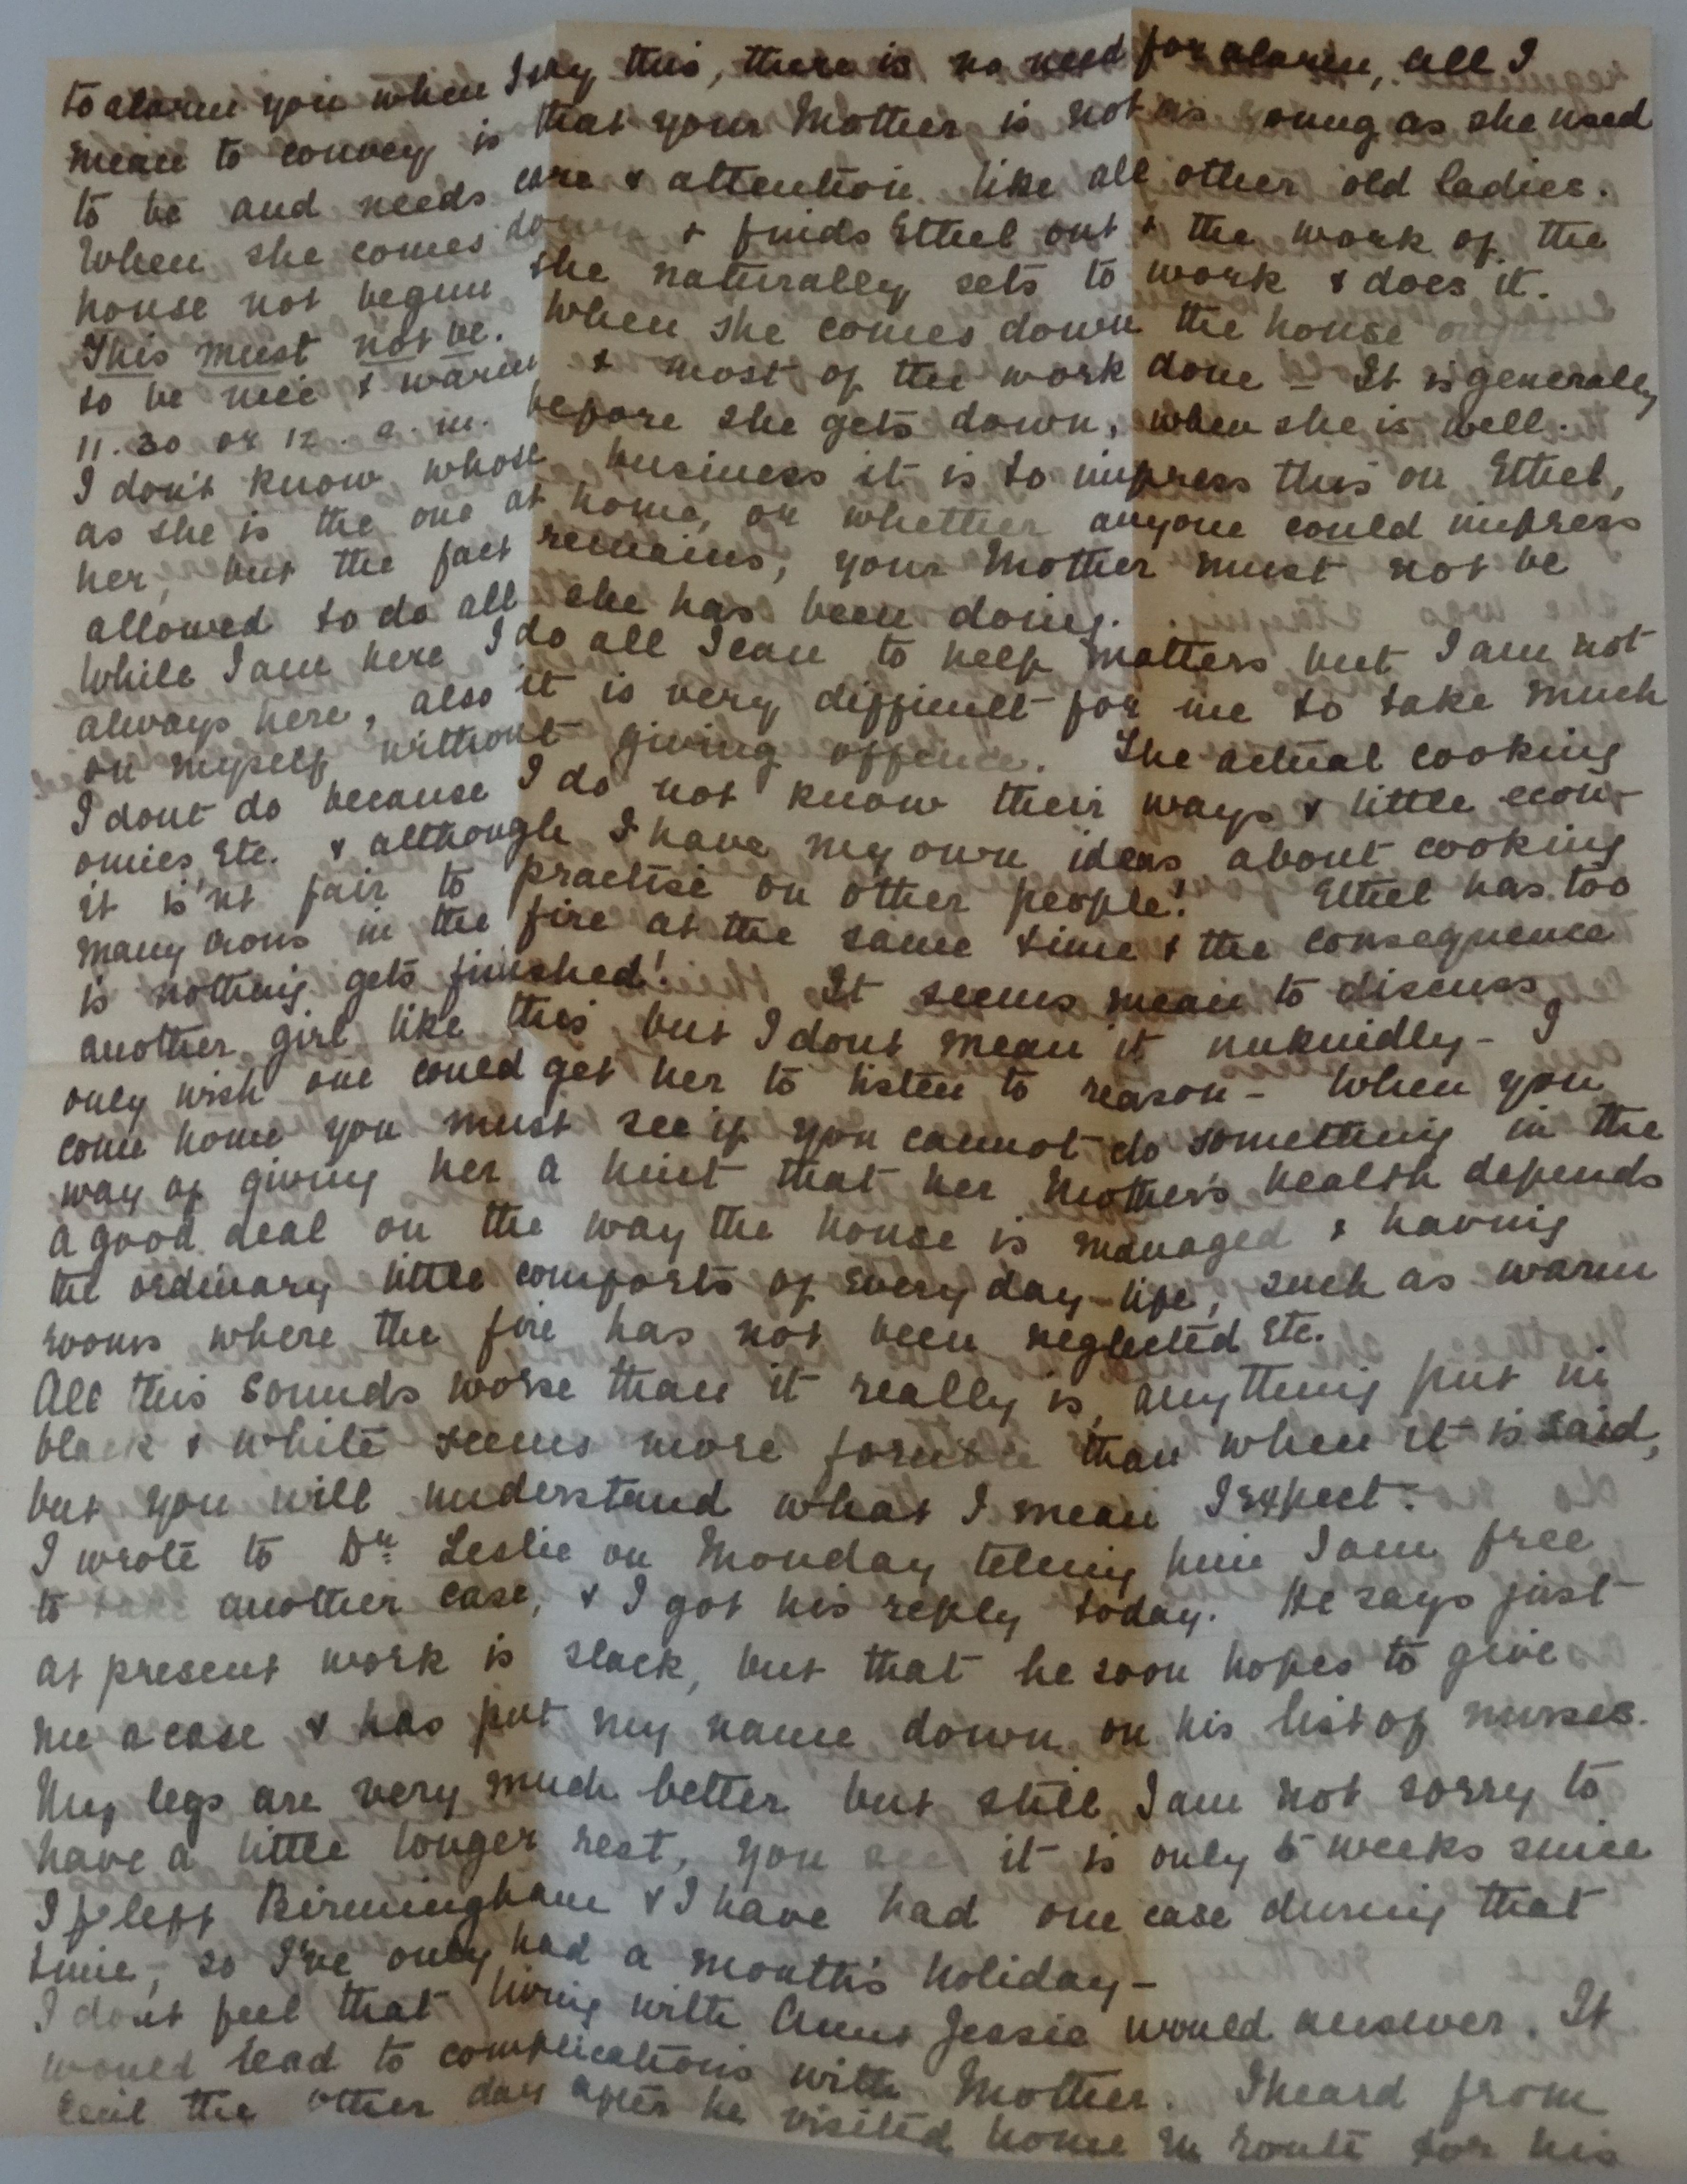 to alarm you when I say this, there is no need for alarm, all I
mean to convey is that your Mother is not as young as she used
to be and needs care & attention like all other old ladies.
When she comes down & finds Ethel out & the work of the
house not begun she naturally sets to work & does it.
This must not be. When she comes down the house ought
to be nice & warm & most of the work done – It is generally
11.30 or 12. a.m. before she gets down, when she is well.
I don't know whose business it is to impress this on Ethel,
as she is the one at home, or whether anyone could impress
her, but the fact remains, your Mother must not be
allowed to do all she has been doing.
While I am here I do all I can to help matters but I am not
always here, also it is very difficult for me to take much
on myself without giving offence. The actual cooking
I dont do because I do not know their ways & little econ-
omies Etc. & although I have my own ideas about cooking
it is'nt fair to practise on other people! Ethel has too
many irons in the fire at the same time & the consequence
is nothing gets finished! It seems mean to discuss
another girl like this but I dont mean it unkindly – I
only wish one could get her to listen to reason – When you
come home you must see if you cannot do something in the
way of giving her a hint that her Mother's health depends
a good deal on the way the house is managed & having
the ordinary little comforts of every day-life, such as warm
rooms where the fire has not been neglected Etc.
All this sounds worse than it really is, anything put in
black & white seems more forcible than when it is said,
but you will understand what I mean I expect.
I wrote to Dr. Leslie on Monday telling him I am free
to take another case, & I got his reply today. He says just
at present work is slack, but that he soon hopes to give
me a case & has put my name down on his list of nurses.
My legs are very much better but still I am not sorry to
have a little longer rest, you see it is only 5 weeks since
I left Birmingham & I have had one case during that
time, so I've only had a month's holiday –
I don't feel that living with Aunt Jessie would answer. It
would lead to complications with Mother. I heard from
Cecil the other day after he visited home en route for his